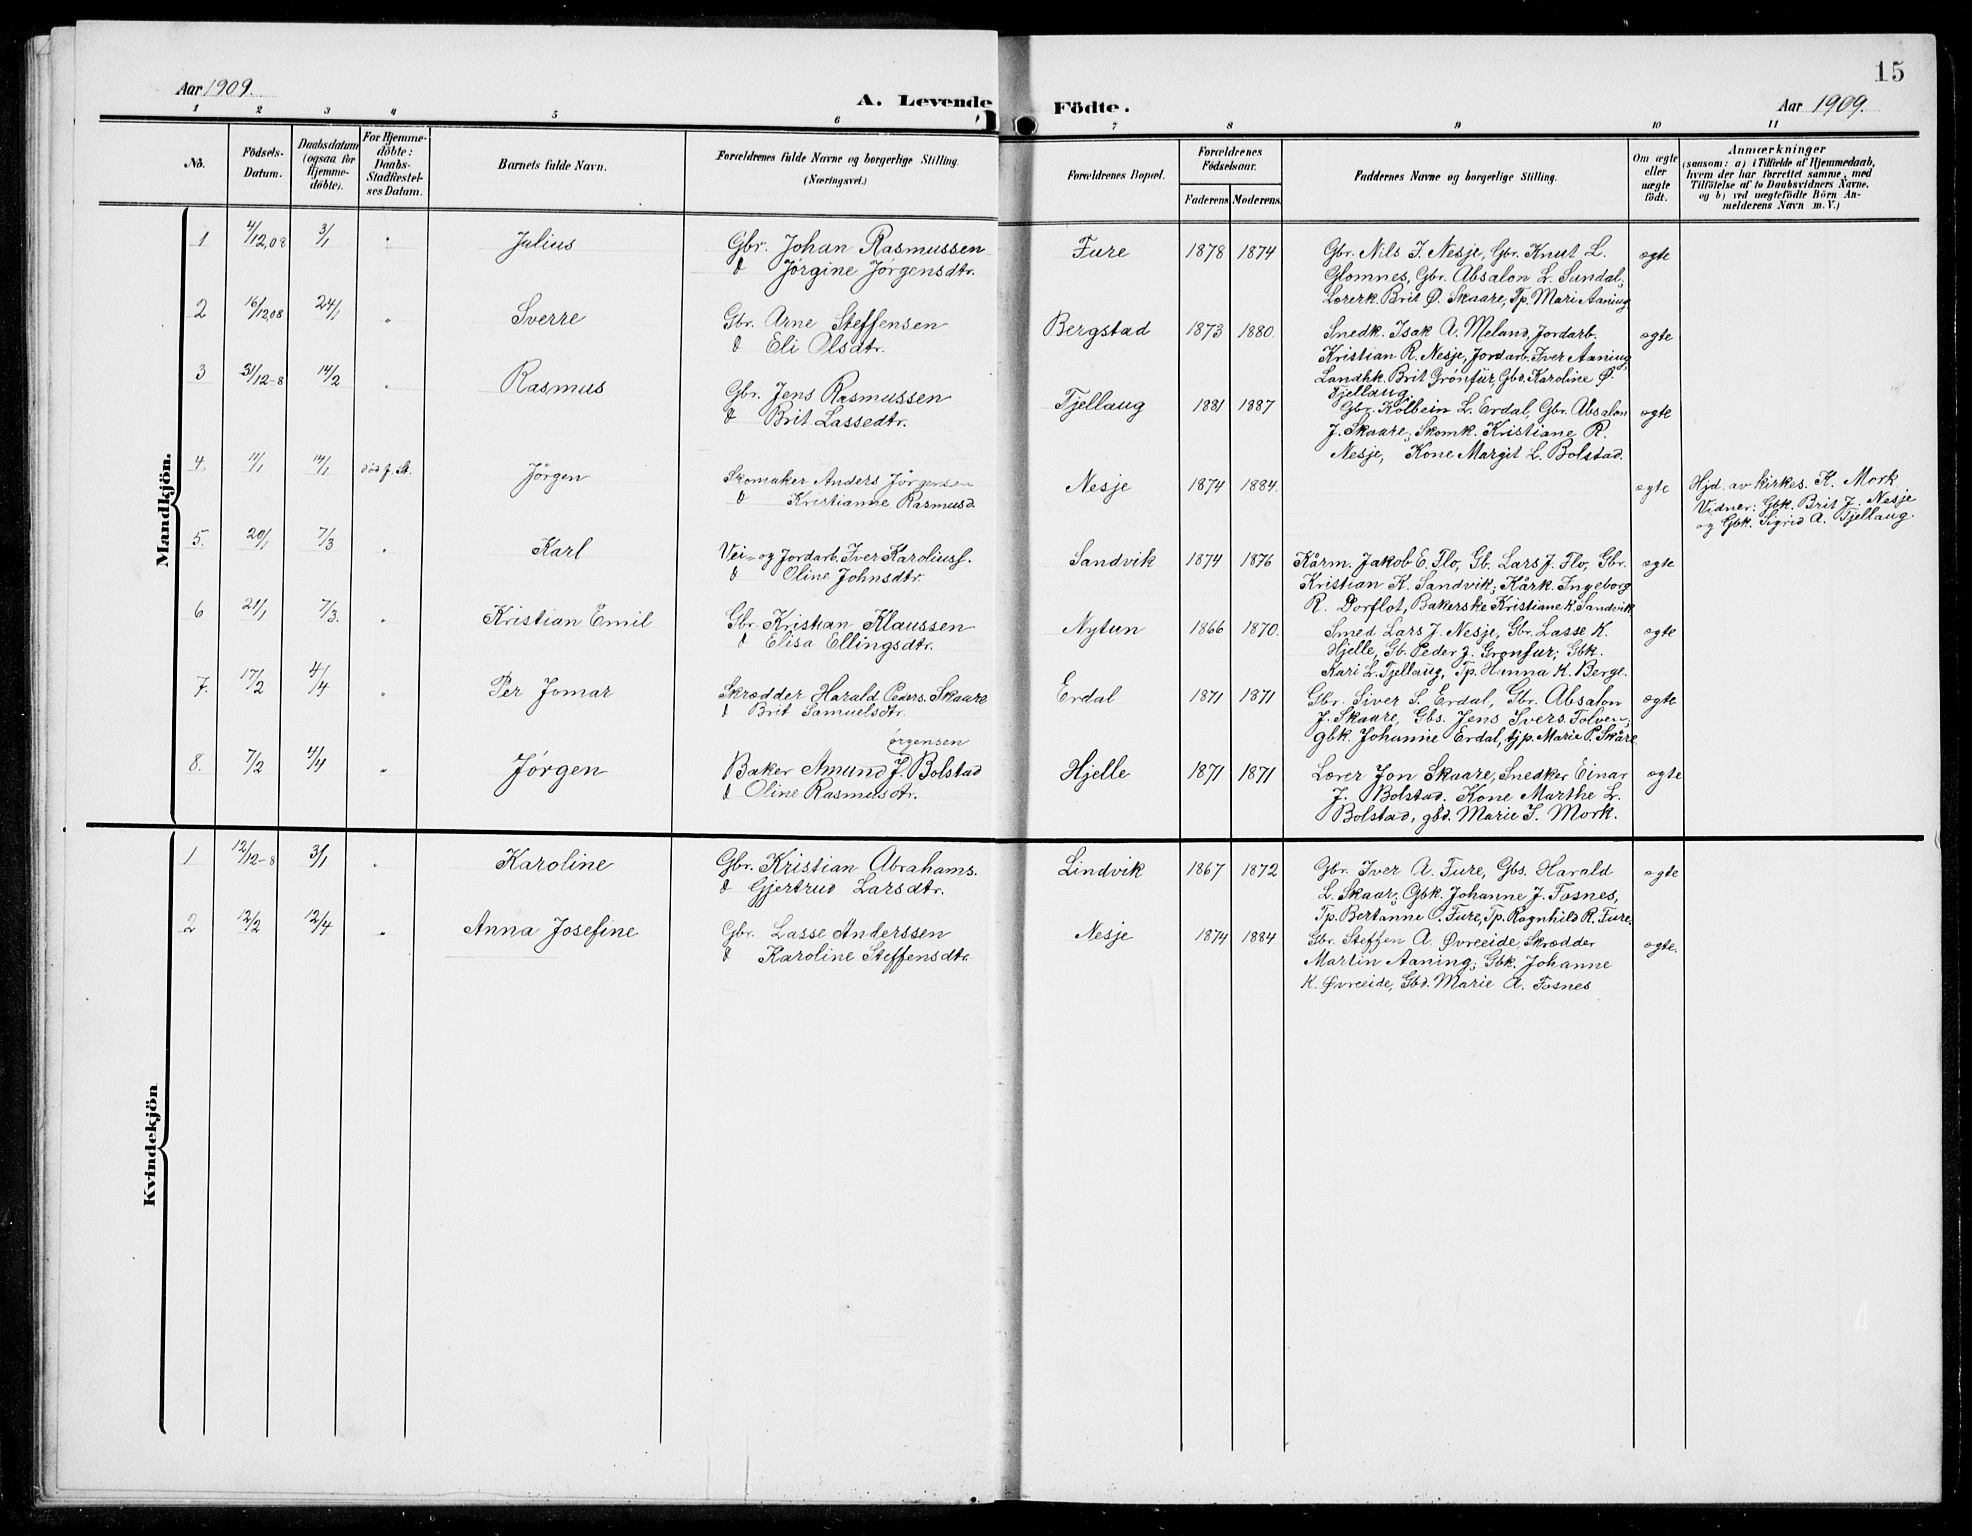 15
Aar 1909.
A. Levende Födte.
Aar 1909.
1 2 3 4 5 6 7 8 9 10 11
No.
Födsels-
Datum.
Daabsdatum
(ogsaa for
Hjemme-
döbte).
For Hjemme-
döbte:
Daabs-
Stadfæstel-
ses Datum.
Barnets fulde Navn.
Forældrenes fulde Navne og borgerlige Stilling.
(Næringsvei.)
Forældrenes Bopæl.
Forældrenes
Födselsaar.
Faderens Moderens.
Faddernes Navne og borgerlige Stilling.
Om ægte
eller
uægte
födt.
Anmærkninger
(saasom: a) i Tilfælde af Hjemmedaab,
hvem der har forrettet samme, med
Tilföielse af to Daabsvidners Navne,
og b) ved uægtefödte Börn An-
melderens Navn m. V.)
Mandkjön.
1 4/12,08 3/1 " Julius Gbr. Johan Rasmussen Fure 1878 1874 Gbr. Nils J. Nesje, Gbr. Knut L. ægte
& Jørgine Jørgensdtr. Glomnes, Gbr. Absalon L. Sundal;
Lærerk. Brit Ø. Skaare, Tp. Mari Aaning
2 16/12 08 24/1 " Sverre Gbr. Arne Steffensen Bergstad 1873 1880. Snedk. Isak A. Meland, Jordarb. ægte
& Eli Olsdtr. Kristian R. Nesje, Jordarb. Iver Aaning,
Landhk. Brit Grønfur, Gbd. Karoline Ø.
Tjellaug.
3 31/12-8 14/2 " Rasmus Gbr. Jens Rasmussen Tjellaug 1881 1887 Gbr. Kolbein L. Erdal, Gbr. Absalon ægte
& Brit Lassedtr. J. Skaare; Skomk. Kristiane R.
Nesje, Kone Margit L. Bolstad.
4. 11/1 14/1 død f. St. Jörgen Skomaker Anders Jørgensen Nesje 1874 1884. ægte Hjd. av kirkes. K. Mork
& Kristianne Rasmusd. Vidner: Gbk. Brit J. Nesje
og Gbk. Sigrid A. Tjellaug.
5. 20/1 7/3 " Karl Vei- og Jordarb. Iver Karoliusf. Sandvik 1874 1876 Kårm. Jakob E. Flo, Gb. Lars J. Flo, Gbr. ægte
& Oline Johnsdtr. Kristian K. Sandvik; Kårk. Ingeborg
R. Dorflot, Bakerske Kristiane K. Sandvik
6 21/1 7/3. " Kristian Emil Gbr. Kristian Klaussen Nytun 1866 1870. Smed Lars J. Nesje, Gbr. Lasse K. ægte
& Elisa Ellingsdtr. Hjelle, Gb. Peder J. Grønfur; Gbk.
Kari L. Tjellaug, Tp. Hanna K. Berge.
7. 17/2 4/4 " Per Jomar Skrædder Harald Peders. Skaare Erdal 1871 1871 Gbr. Siver S. Erdal, Gbr. Absalon ægte
& Brit Samuelsdtr. J. Skaare, Gbs. Jens Ivers. Tolven;
gbk. Johanne Erdal, tjp. Marie P. Skåre
ørgensen
8. 7/2 4/4 " Jørgen Baker Amund J. Bolstad Hjelle 1871 1871 Lærer Jon Skaare, Snedker Einar ægte
& Oline Rasmusdtr. J. Bolstad. Kone Marthe L.
Bolstad, gbd. Marie I. Mork.
Kvindekjön
1 12/12-8 3/1 " Karoline Gbr. Kristian Abrahams. Lindvik 1867 1872 Gbr. Iver A. Fure, Gbs. Harald ægte
& Gjertrud Larsdtr. L. Skaar; Gbk Johanne J. Fosnes,
Tp. Bertanne O. Fure, Tp. Ragnhild R. Fure.
2 12/2 12/4 " Anna Josefine Gbr. Lasse Anderssen Nesje 1874 1884 Gbr. Steffen A. Øvreeide, Skrædder ægte.
& Karoline Steffensdtr. Martin Aaning; Gbk. Johanne
K. Øvreeide, Gbd. Marie A. Fosnes